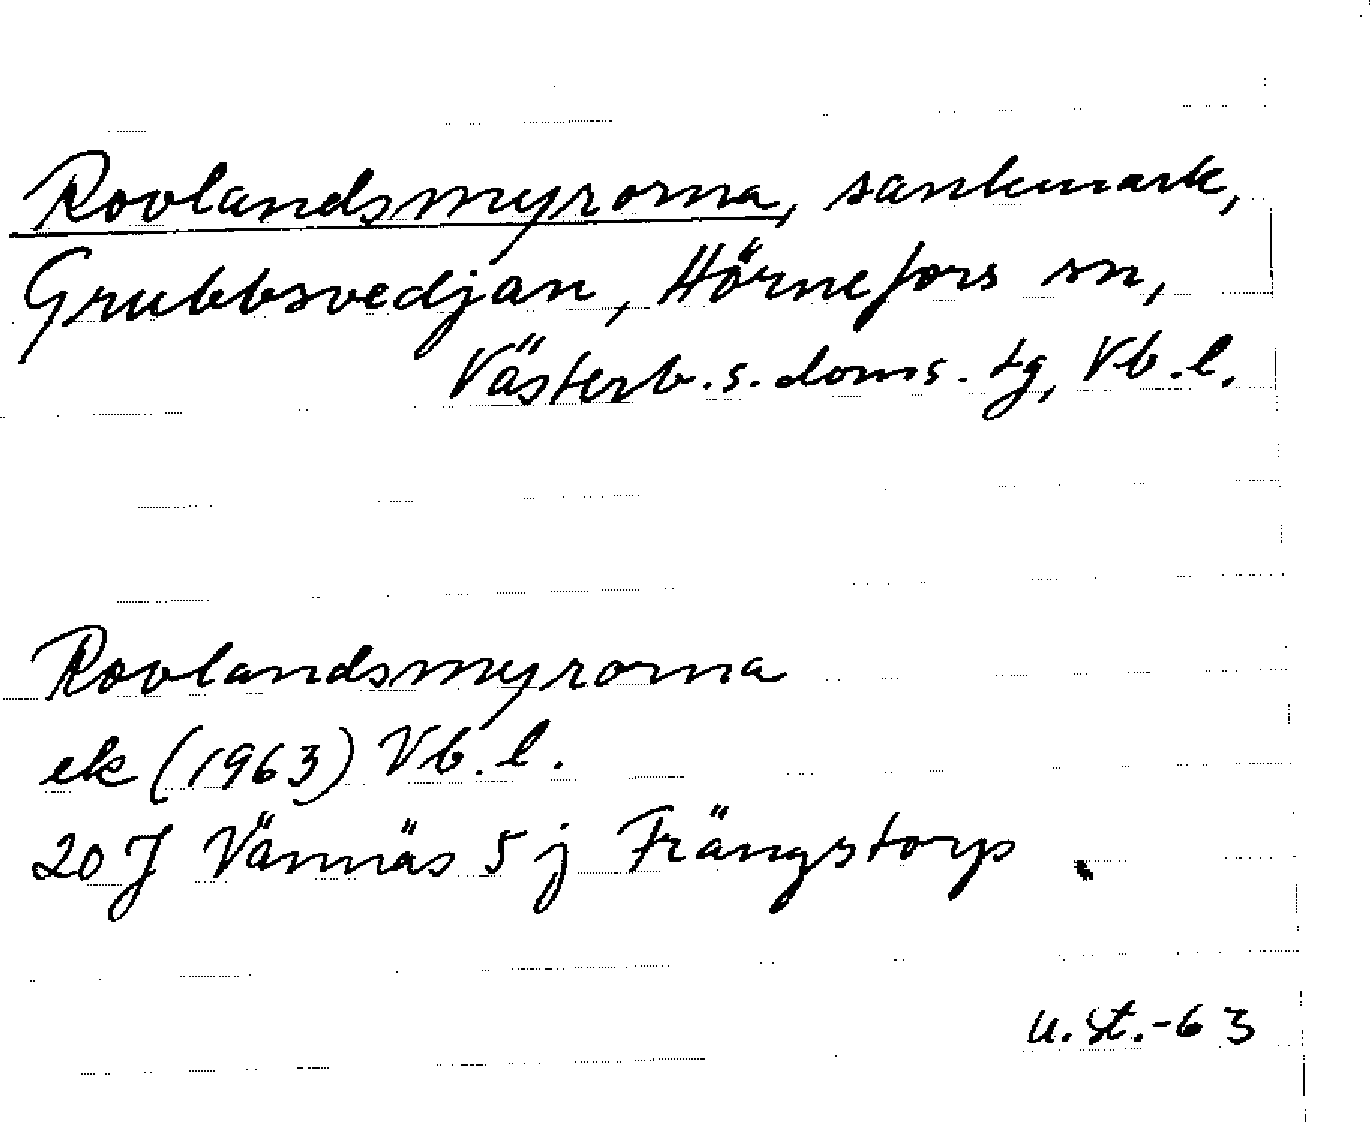 Rovlandsmyrorna, sankmark,
Grubbsvedjan, Hörnefors sn,
Västerb. s. doms. tg, Vb. l.
Rovlandsmyrorna
ek (1963) Vb. l.
20 J Vännäs 5 j Frängstorp.
U. St. -63